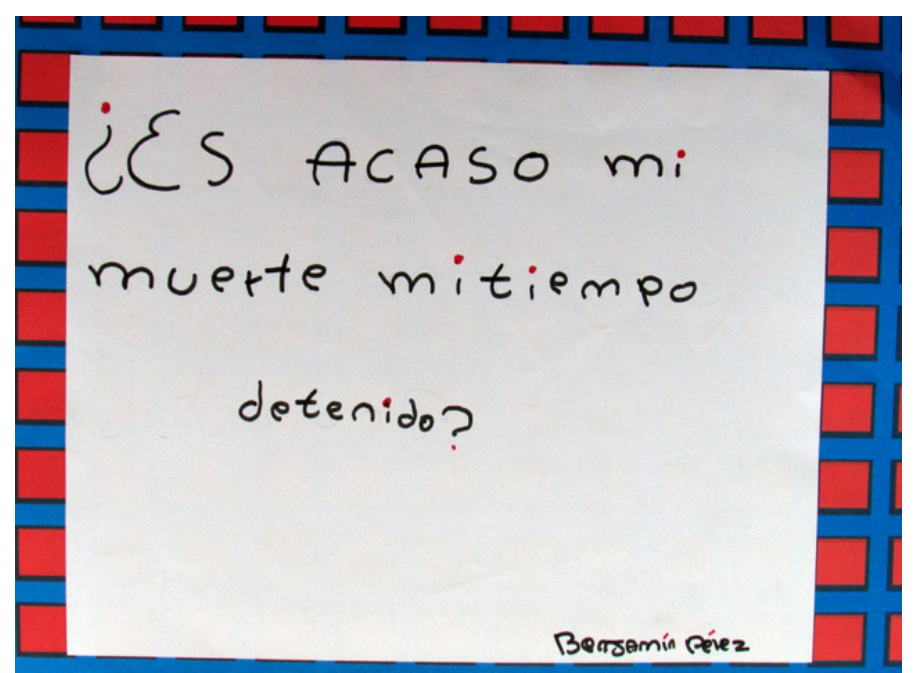 ¿ES ACASO mi
muerte mi tiempo
detenido?
Benjamín Pérez